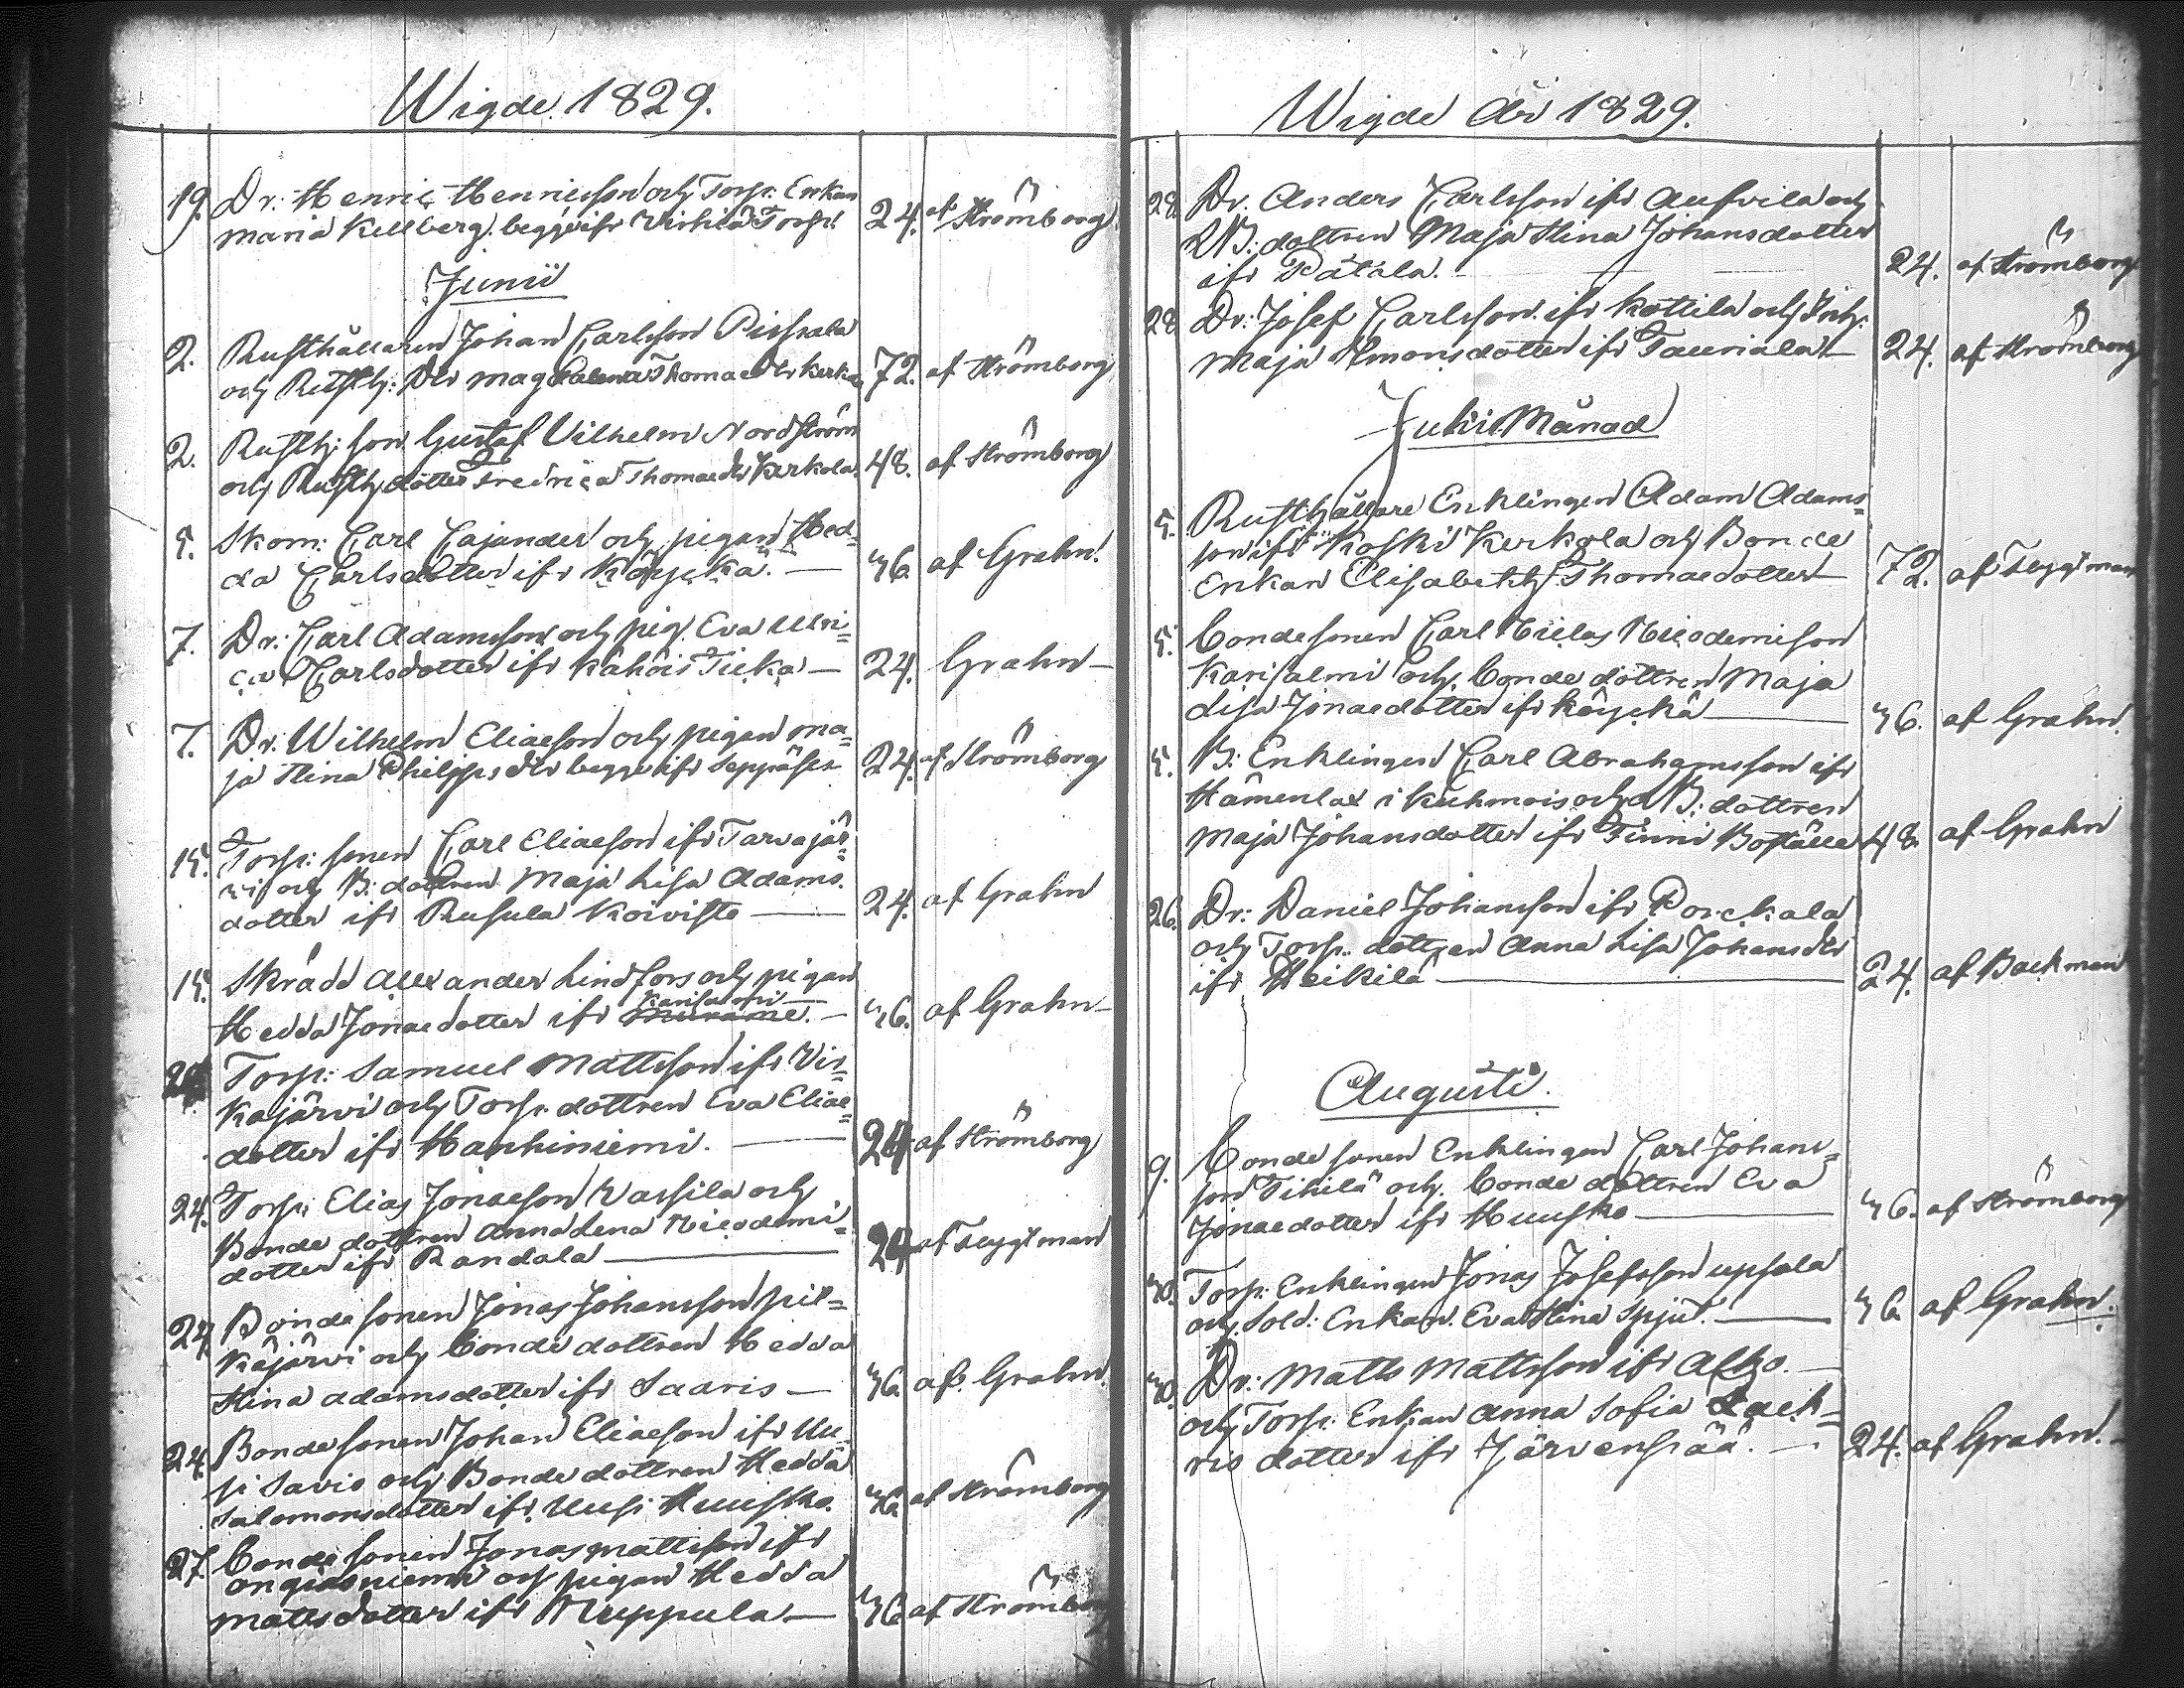 Wigde 1829.
19. Dr: Henric Henricsson och Torp: Enkan
Maria Kellberg. begge ifr Virhila Torp! 24. af Strömborg
Junii
2. Rusthållaren Johan Carlsson Pispala
och Rusth: Dtr Magdalena Thomae Dtr Kerko 72. af Strömborg
2. Rusth: son Gustaf Vilhelm Nordström
och Rusth dotter Fredrica Thomaedtr Kerkola. 48. af Strömborg
5. Skom: Carl Cajander och pigan Hed=
da Carlsdotter ifr Köyckä. — 36. af Grahn.
7. Dr: Carl Adamsson och pig. Eva Ulri=
ca Carlsdotter ifr Kähöis Tieka — 24. Grahn —
7. Dr: Wilhelm Eliaeson och pigan Ma=
ja Stina Philpps dtr begge ifr Seppäler 24. af Strömborg
15. Torp: sonen Carl Eliaeson ifr Tarvajär=
vi och B: dottren Maja Lisa Adams.
dotter ifr Rusula Koivisto — 24. af Grahn
15. Skrädd Allexander Lindfors och pigan
Karisalmi —
Hedda Jonaedotter ifr — 36. af Grahn —
Torp: Samuel Mattsson ifr Vir=
kajärvi och Torp. dottren Eva Eliae=
dotter ifr Hanhiniemi. — 24 af Strömborg
24. Torp: Elias Jonaeson Vassila och
Bonde dottren Anna Lena Nicodemi=
dotter ifr Randala — 24 af Teggtman
24 Bonde sonen Jonas Johansson Pil=
käjärvi och bonde dottren Hedda
Stina Adamsdotter ifr Saaris — 36. af Grahn.
24. Bonde sonen Johan Eliaeson ifr Uu=
si Savio och Bonde dottren Hedda
Salomonsdotter ifr Uusi Huusko. 36. af Strömborg
27. Bonde sonen Jonas Mattsson ifr
och pigan Hedda
Mattsdotter ifr Nuppula — 36 af Strömborg
Wigde år 1829.
28. Dr. Anders Carlsson ifr Aufvila och
B: dottren Maja Stina Johansdotter
ifr Pätälä. — 24. af Strömborg
28 Dr: Josef Carlsson ifr Kottila och Inh:
Maja Simonsdotter ifr Tauriala — 24. af Strömborg
Julii Månad
5. Rusthållare Enklingen Adam Adams=
son ifr Koski Kerkola och Bonde
Enkan Elisabeth Thomaedotter 72. af Teggtman
5. Bondesonen Carl Niclas Nicodemison
Karisalmi och. bonde dottren Maja
Lisa Jonaedotter ifr Köyckä — 36. af Grahn.
5. B: Enklingen Carl Abrahamsson ifr
Hämenlax i Kuhmois och B: dottren
Maja Johansdotter ifr Finni Boställe 48 af Grahn
26. Dr: Daniel Johansson ifr Porckala
och Torp. dottren Anna Lisa Johansdtr
ifr Heikilä — 24. af Backman
Augusti.
9. Bonde sonen Enklingen Carl Johans=
son Tikilä och. bonde dottren Eva
Jonaedotter ifr Huusko — 36. af Strömborg
30. Torp: Enklingen Jonas Josefsson Upsala
och Sold: Enkan. Eva Stina Spjut. — 36 af Grahn.
30. Dr: Matts Mattsson ifr Alho. —
och Torp: Enkan Anna Sofia Zach=
ris dotter ifr Järvenpää. — 24. af Grahn. —